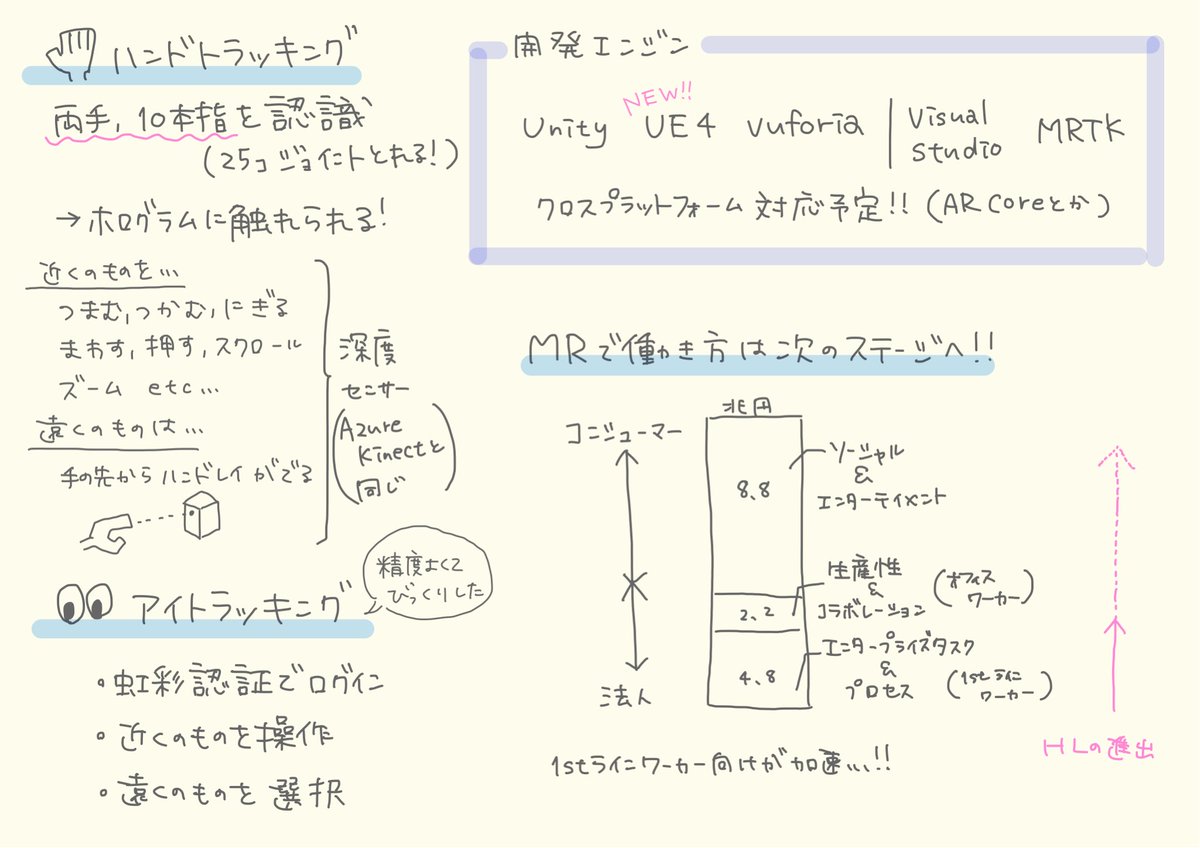 ハンドトラッキング
両手, 10本指を認識
(25コ ジョイントとれる!)
→ ホログラムに触れられる!
近くのものを...
つまむ, つかむ, にぎる
まわす, 押す, スクロール
ズーム etc...
遠くのものは...
手の先から ハンドレイ がでる
深度
センサー
(Azure
Kinectと
同じ)
アイトラッキング
精度よくて
びっくりした
・虹彩認証でログイン
・近くのものを操作
・遠くのものを選択
開発エンジン
NEW!!
Unity UE4 vuforia | Visual Studio MRTK
クロスプラットフォーム 対応予定!! (AR Coreとか)
MRで働き方は次のステージへ!!
兆円
コンシューマー
法人
8.8
ソーシャル
&
エンターテイメント
2.2
生産性
&
コラボレーション
(オフィス
ワーカー)
4.8
エンタープライズタスク
&
プロセス
(1stライン
ワーカー)
HLの進出
1stラインワーカー向けが加速...!!